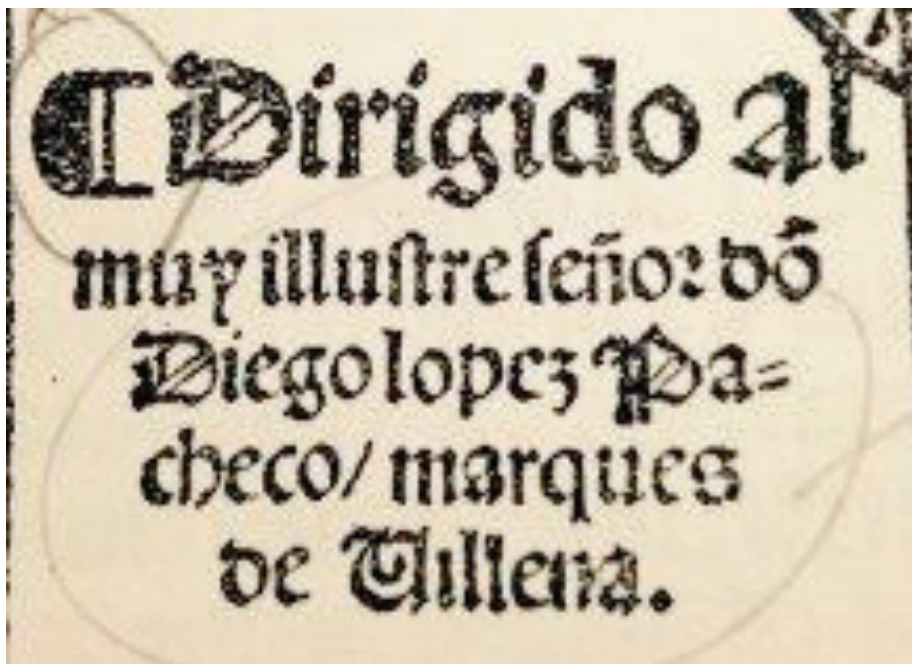 ¶Dirigido al
muy illuſtre ſeñor dõ
Diego lopez Pa=
checo/ marques
de Uillena.